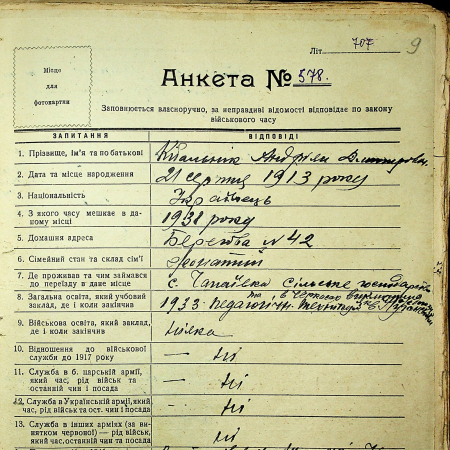 Літ. 707
9
Місце
для
фотокартки
Анкета № 578.
Заповнюється власноручно, за неправдиві відомості відповідає по закону
військового часу
ЗАПИТАННЯ ВІДПОВІДІ
1. Прізвище, ім'я та по батькові Андріян Дмитрович
2. Дата та місце народження 21 серпня 1913 року
3. Національність Українець
4. З якого часу мешкає в да-
ному місці 1931 року
5. Домашня адреса № 42
6. Сімейний стан та склад сім'ї
7. Де проживав та чим займався
до переїзду в дане місце с. Чапаївка Сільське господарство
8. Загальна освіта, який учбовий
заклад, де і коли закінчив 1933
9. Військова освіта, який заклад,
де і коли закінчив
10. Відношення до військової
служби до 1917 року — Ні
11. Служба в б. царській армії,
який час, рід військ та
останній чин і посада — Ні
12. Служба в Українській армії, який
час, рід військ та ост. чин і посада — Ні
13. Служба в інших арміях (за ви-
нятком червоної) — рід військ,
який час, останній чин та посада Ні